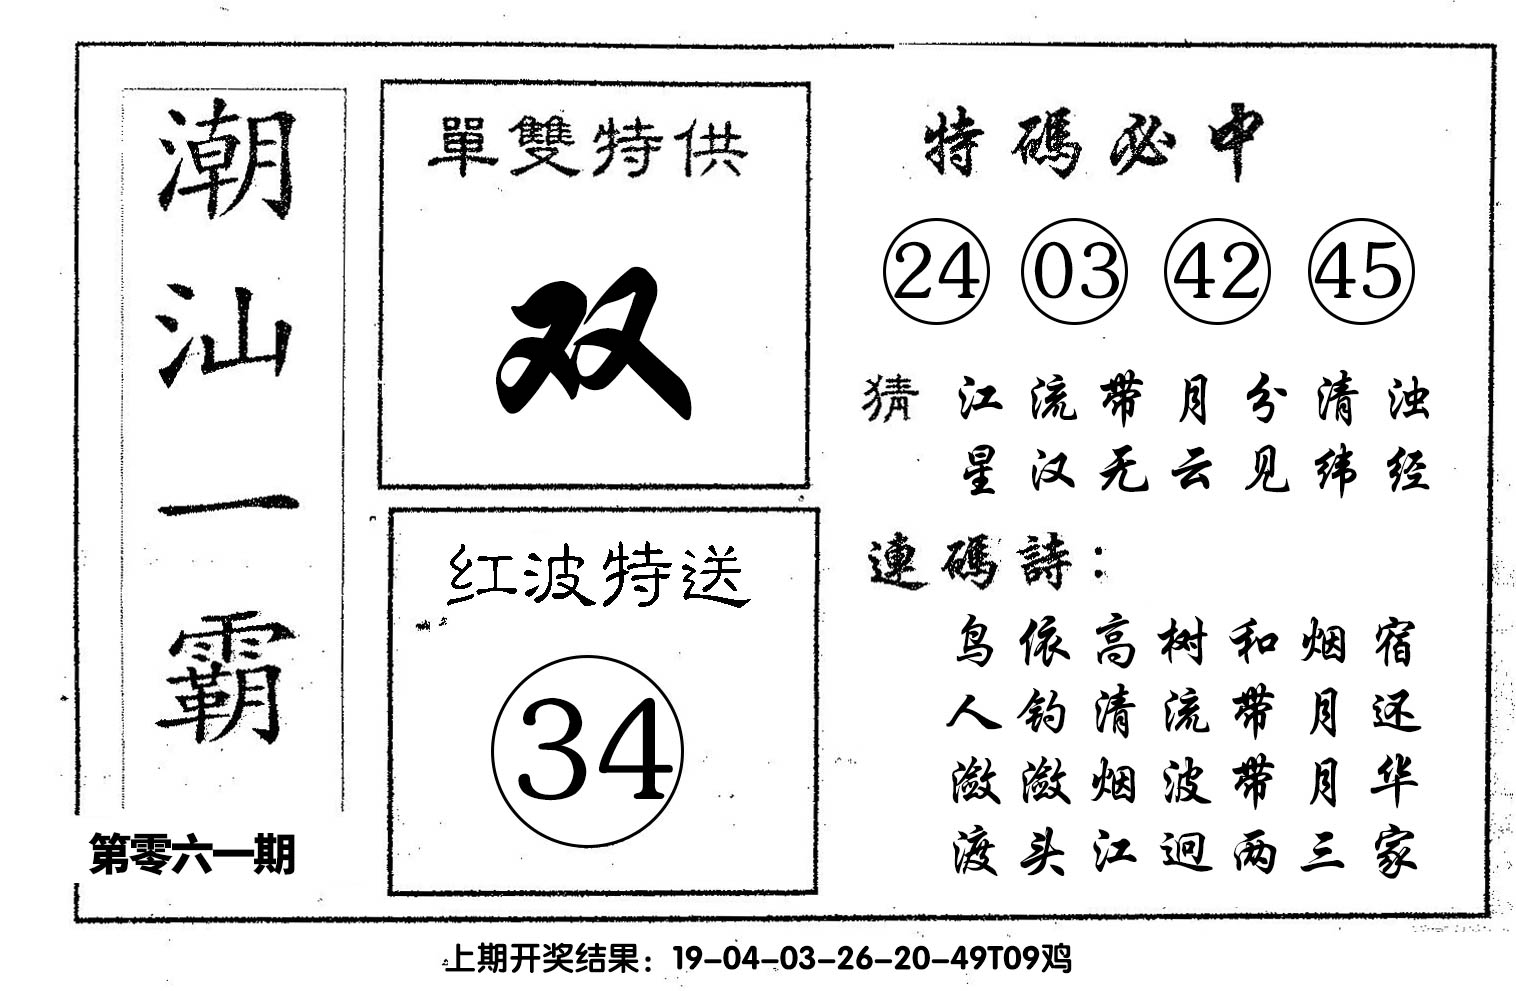 潮汕一霸
第零六一期
單雙特供
双
红波特送
34
特碼必中
24 03 42 45
猜 江流带月分清浊
星汉无云见纬经
連碼詩：
鸟依高树和烟宿
人钓清流带月还
潋潋烟波带月华
渡头江迥两三家
上期开奖结果：19-04-03-26-20-49T09鸡